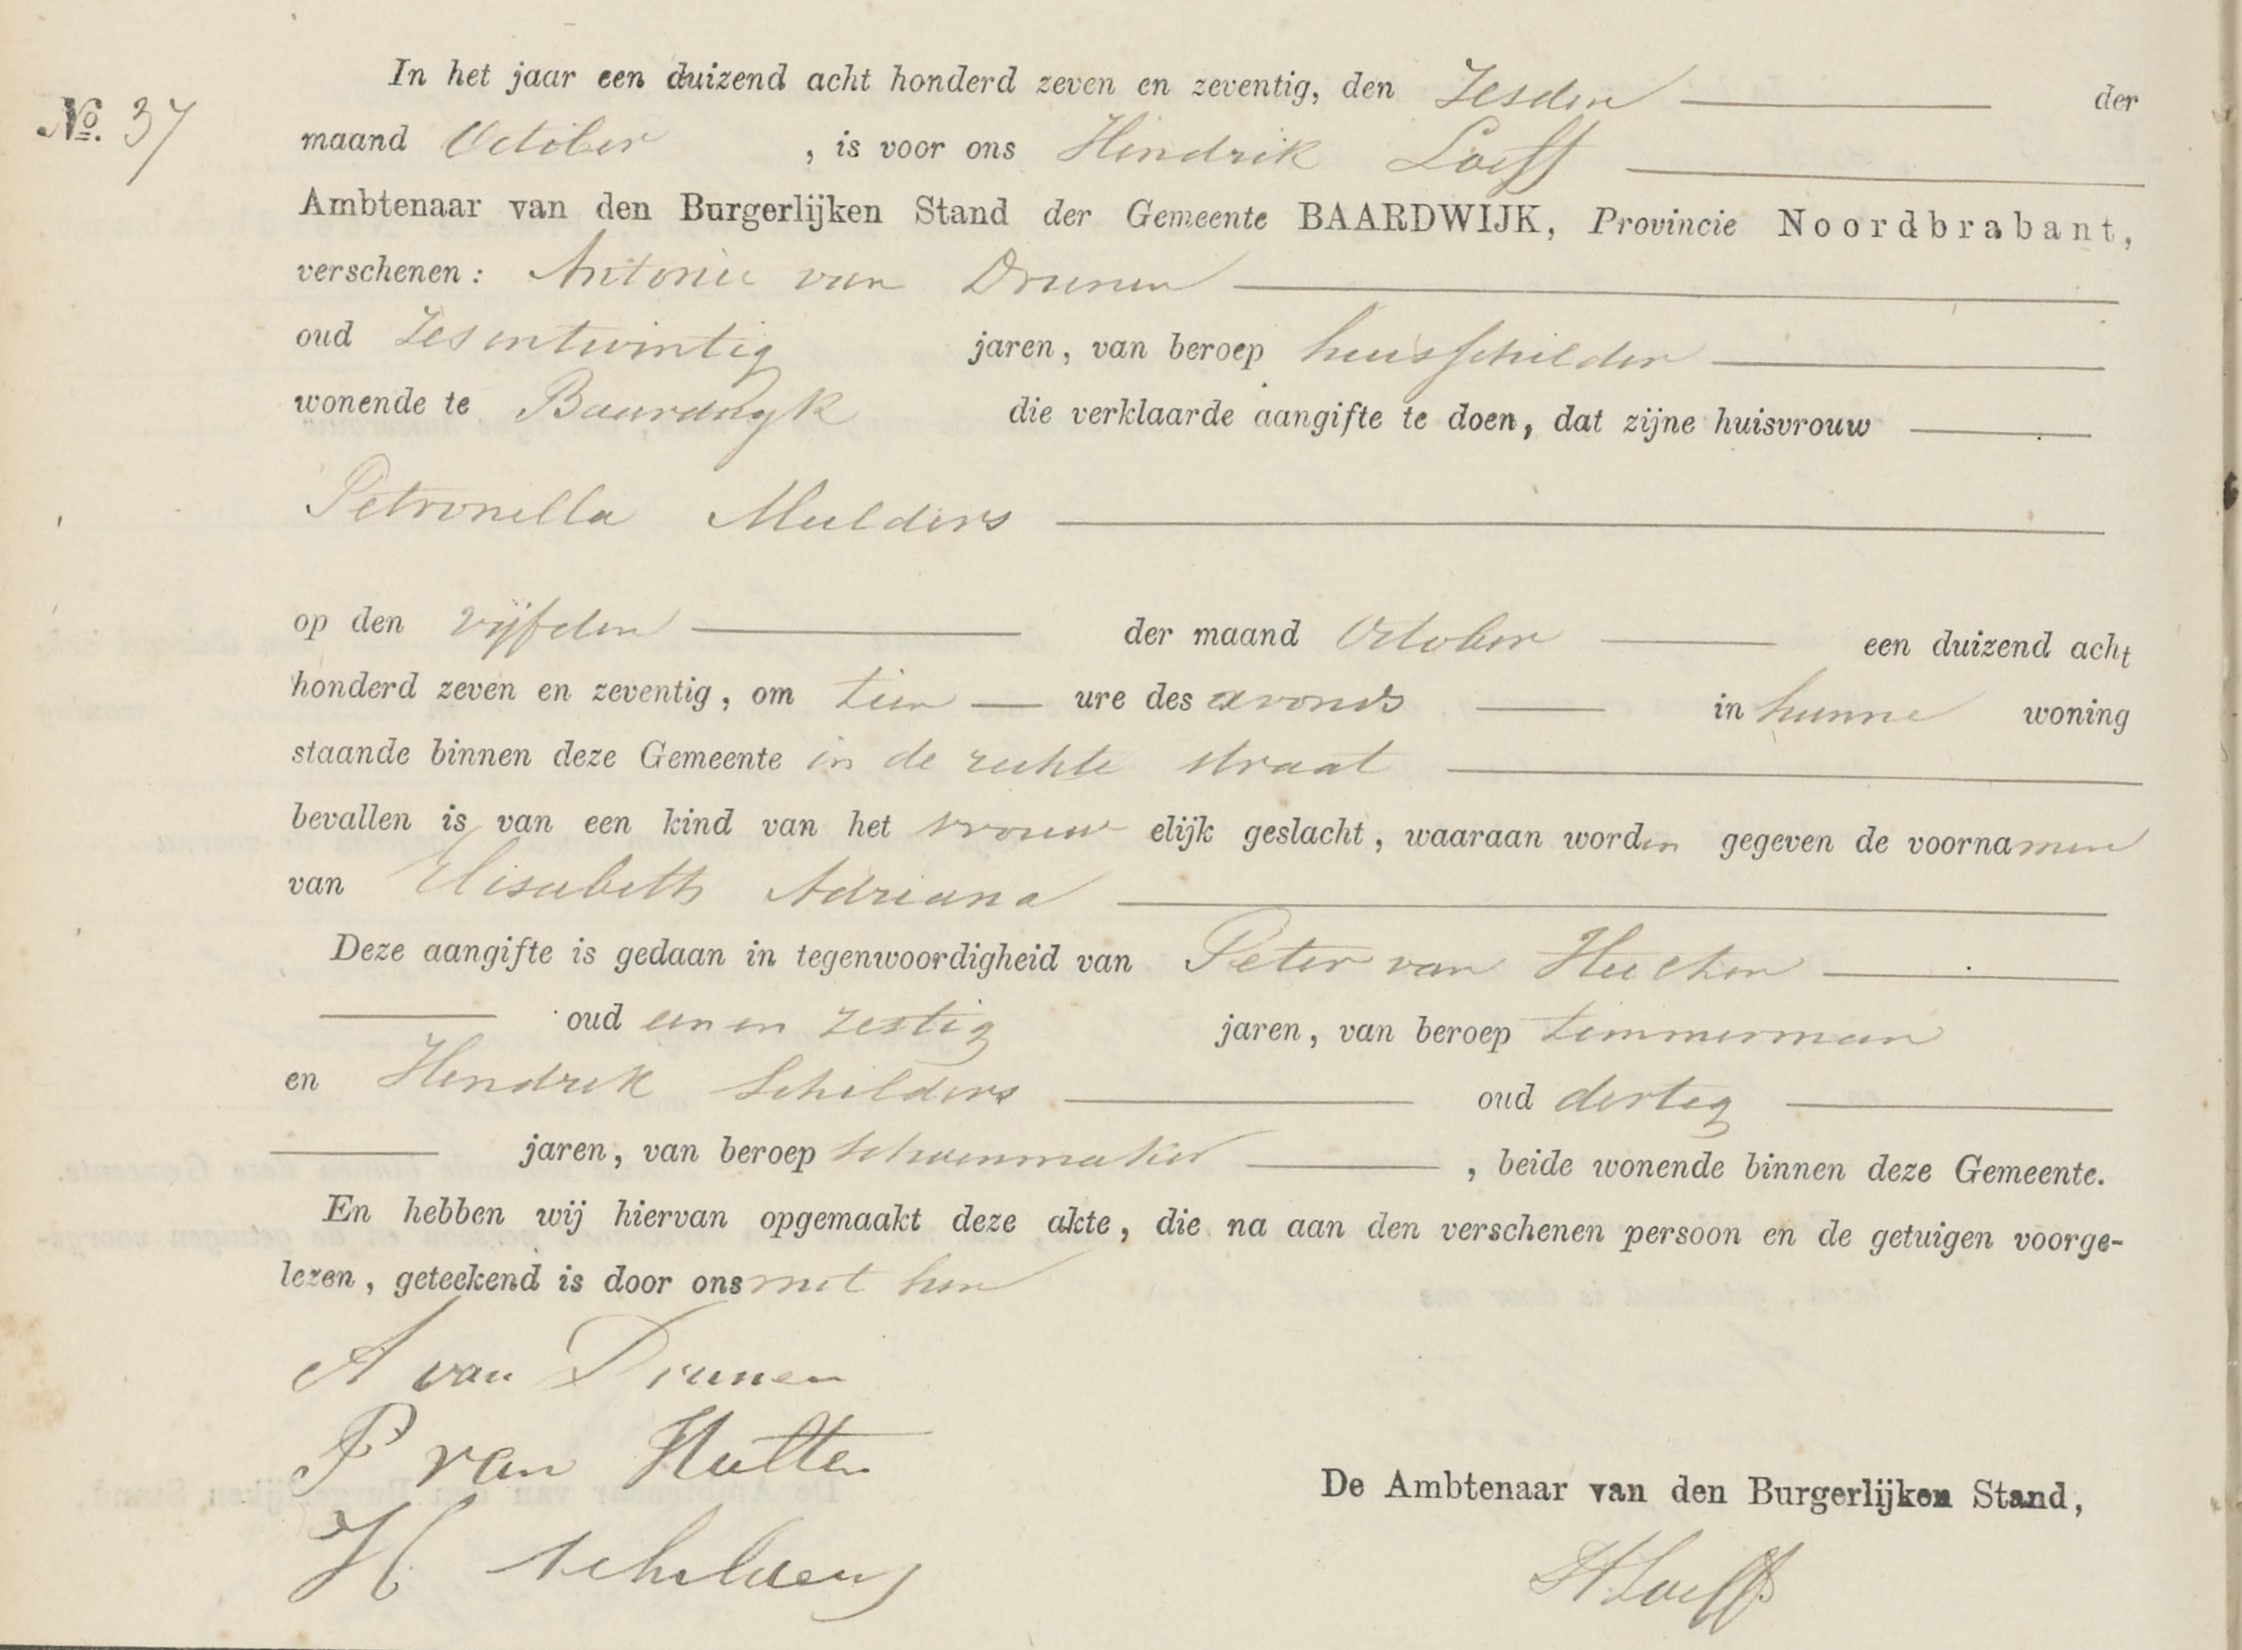 In het jaar een duizend acht honderd zeven en zeventig, den Zesden der
No. 37
maand October , is voor ons Hendrik Loeff
Ambtenaar van den Burgerlijken Stand der Gemeente BAARDWIJK, Provincie Noordbrabant,
verschenen: Antonie van Drunen
oud Zesentwintig jaren, van beroep huisschilder
wonende te Baardwyk die verklaarde aangifte te doen, dat zijne huisvrouw
Petronella Mulders
op den vijfden der maand October een duizend acht
honderd zeven en zeventig, om tien ure des avonds in hunne woning
staande binnen deze Gemeente in de rechte straat
bevallen is van een kind van het vrouw elijk geslacht, waaraan worden gegeven de voornamen
van Elisabeth Adriana
Deze aangifte is gedaan in tegenwoordigheid van Peter van
oud een en zestig jaren, van beroep timmerman
en Hendrik Schilders oud dertig
jaren, van beroep schoenmaker , beide wonende binnen deze Gemeente.
En hebben wij hiervan opgemaakt deze akte, die na aan den verschenen persoon en de getuigen voorge-
lezen, geteekend is door ons met hen
A van Drunen
P van Hulten
De Ambtenaar van den Burgerlijken Stand,
H schilders
H Loeff